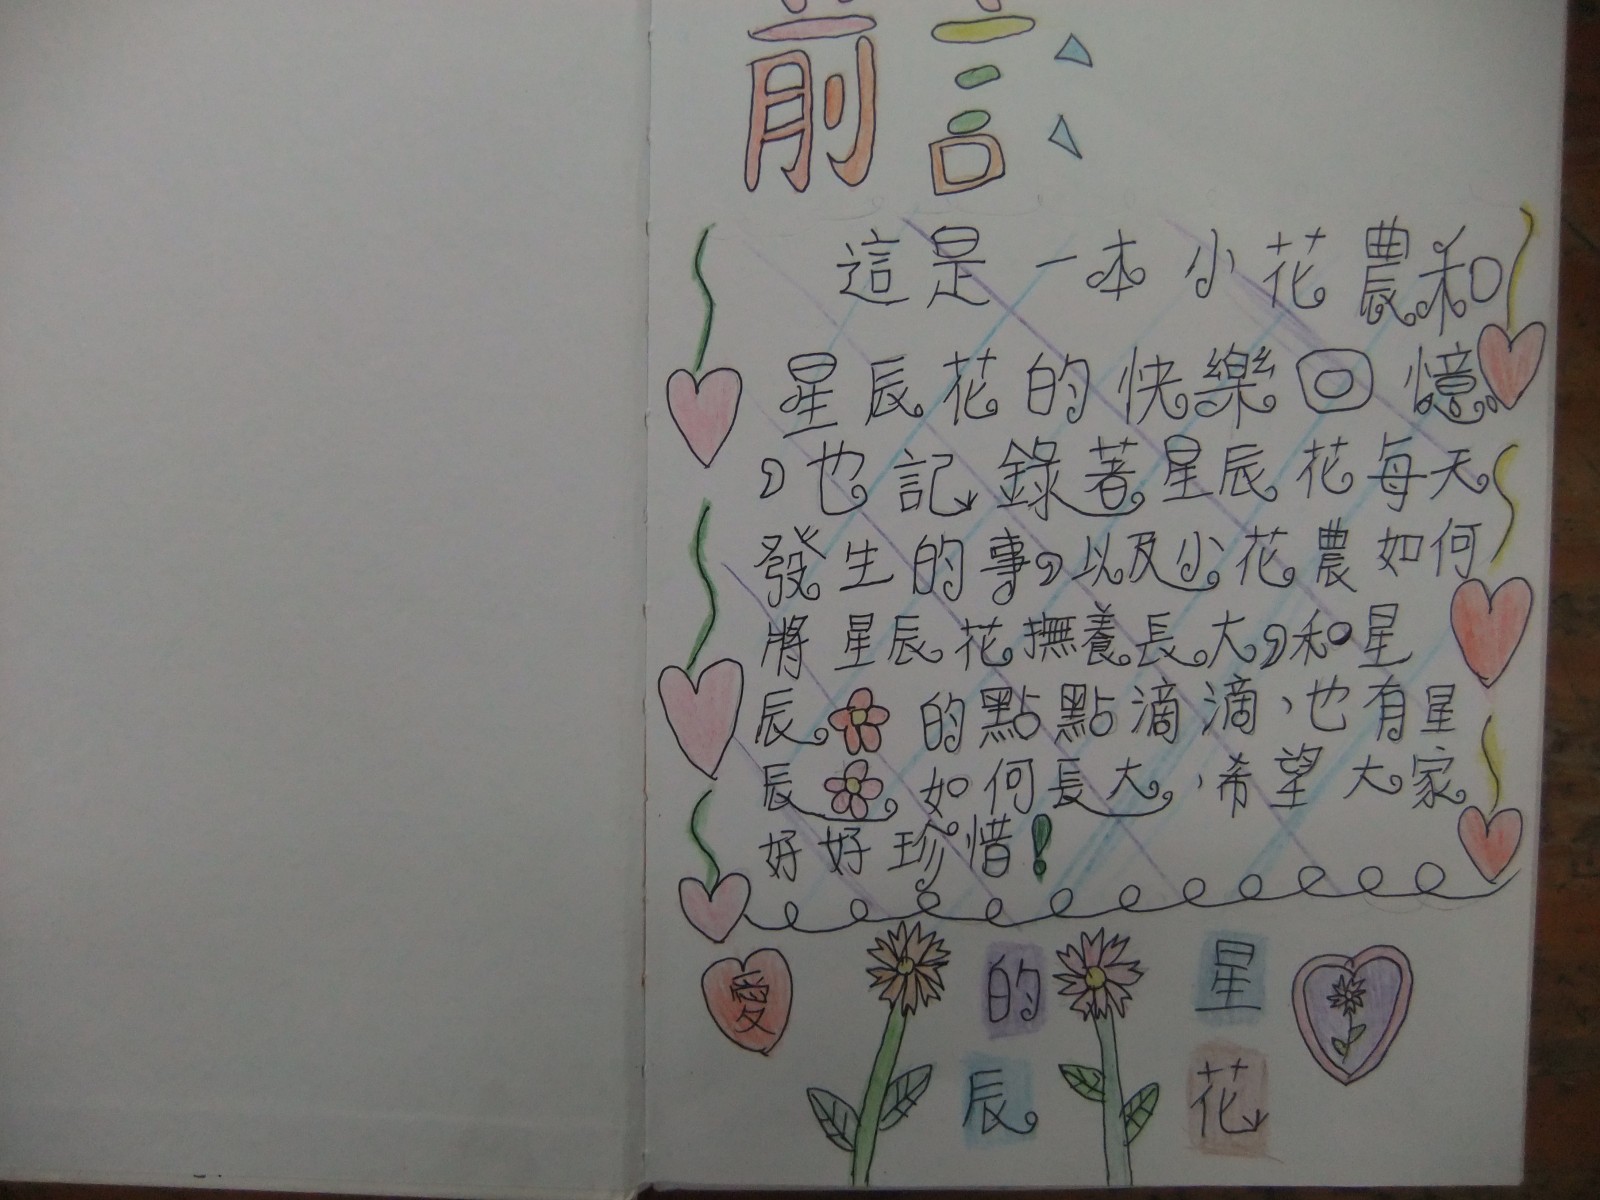 前言
這是一本小花農和
星辰花的快樂回憶
，也記錄著星辰花每天
發生的事，以及小花農如何
將星辰花撫養長大，和星
辰的點點滴滴，也有星
辰如何長大，希望大家
好好珍惜！
愛的星
辰花